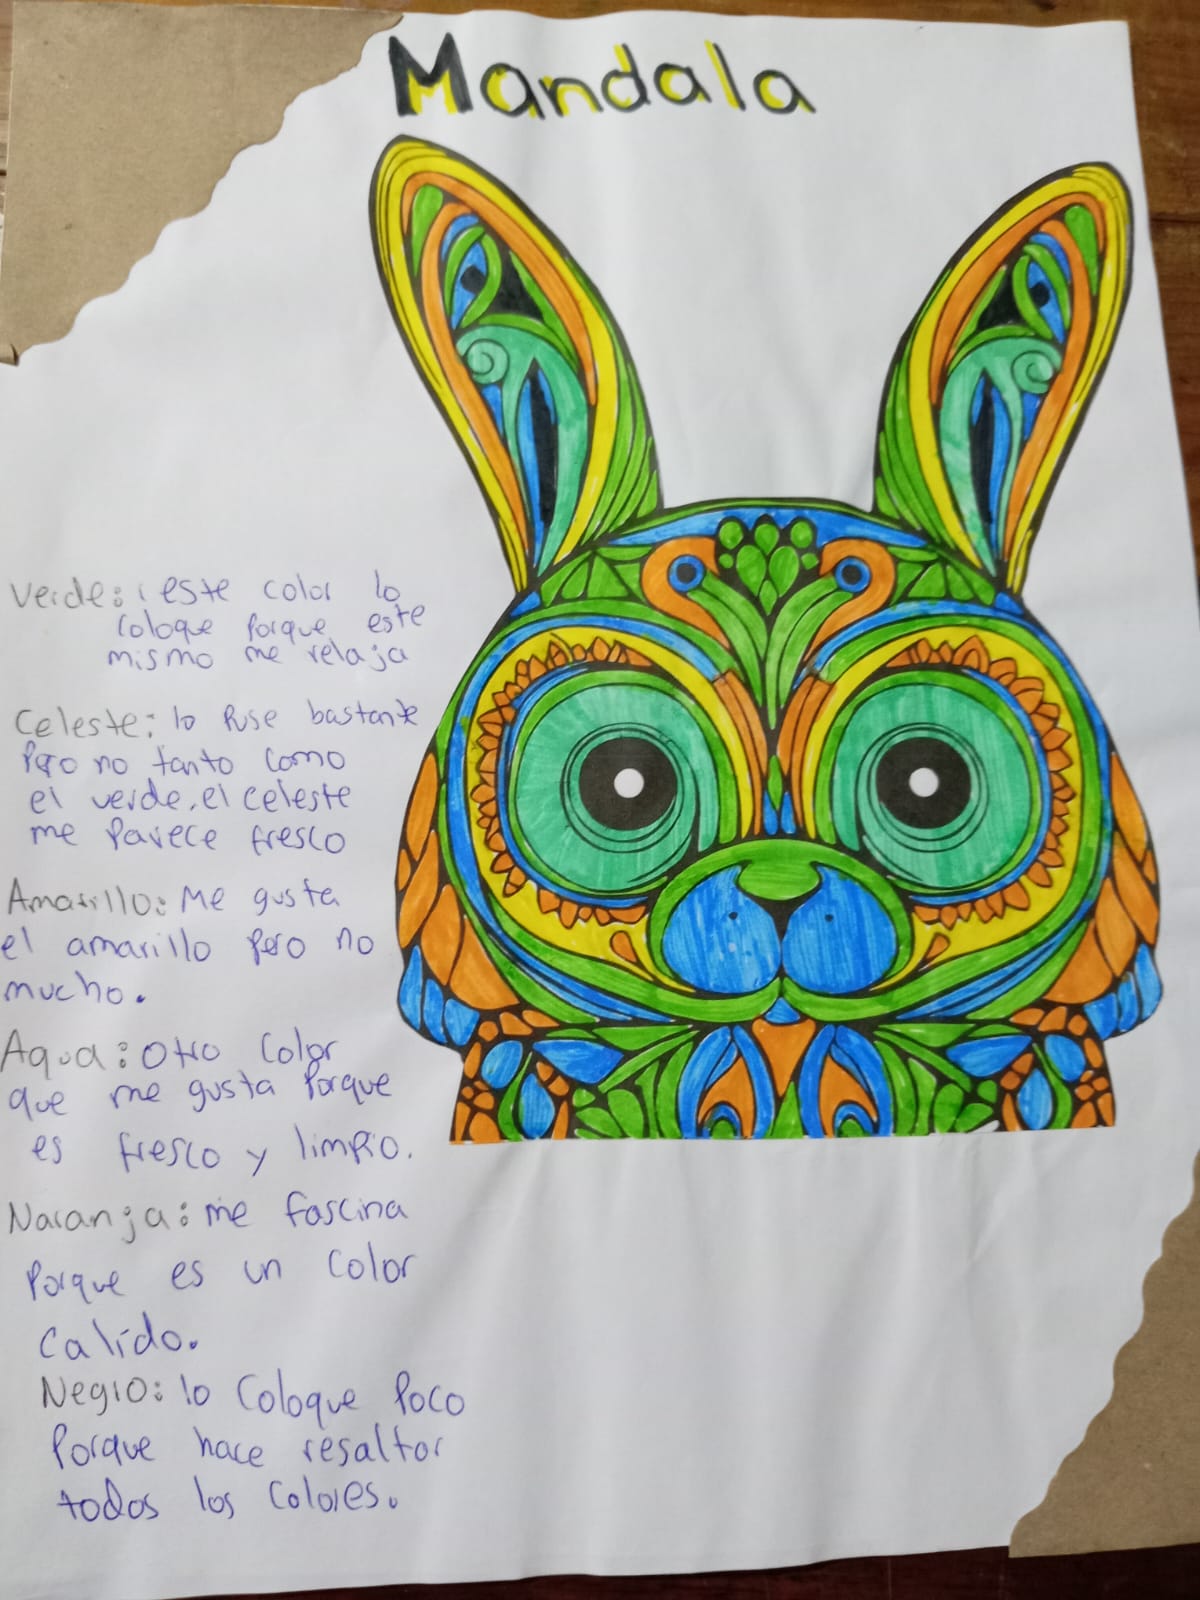 Mandala
Verde: este color lo
coloque porque este
mismo me relaja
Celeste: lo puse bastante
pero no tanto como
el verde, el celeste
me parece fresco
Amarillo: Me gusta
el amarillo pero no
mucho.
Aqua: Otro color
que me gusta porque
es fresco y limpio.
Naranja: me fascina
porque es un color
calído.
Negro: lo coloque poco
porque hace resaltar
todos los colores.